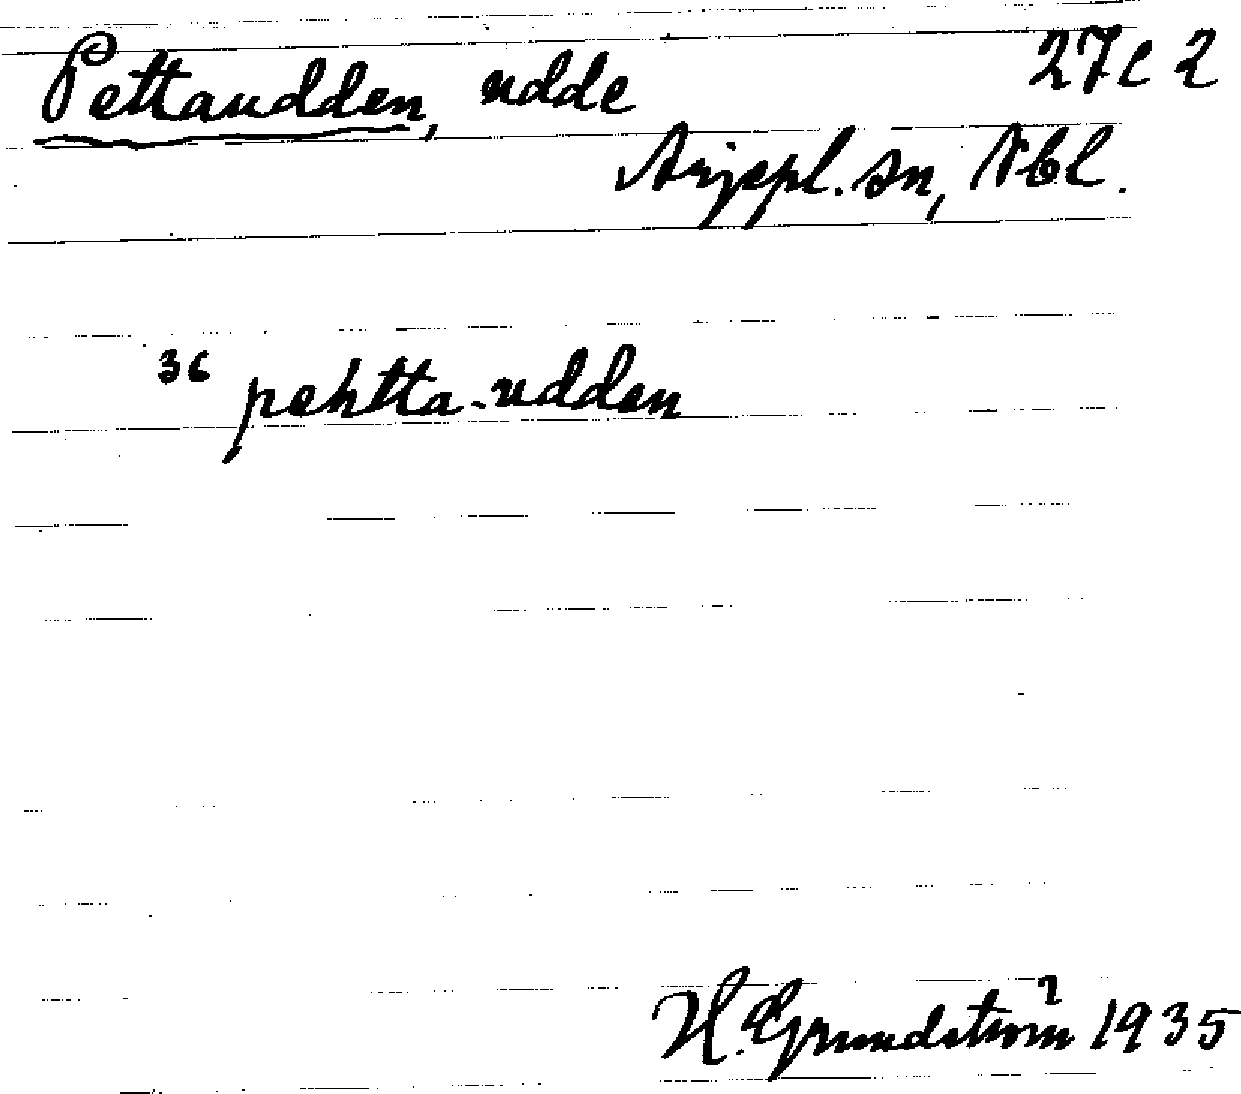 Pettaudden, udde 27c 2
Arjepl. sn, Nbl.
36 pehtta-udden
H. Grundström 1935